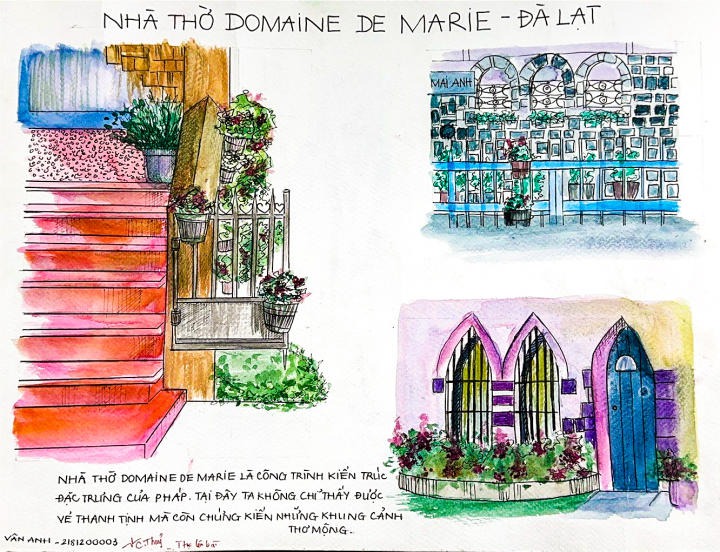 NHÀ THỜ DOMAINE DE MARIE - ĐÀ LẠT
MAI ANH
NHÀ THỜ DOMAINE DE MARIE LÀ CÔNG TRÌNH KIẾN TRÚC
ĐẶC TRƯNG CỦA PHÁP. TẠI ĐÂY TA KHÔNG CHỈ THẤY ĐƯỢC
VẺ THANH TỊNH MÀ CÒN CHỨNG KIẾN NHỮNG KHUNG CẢNH
THƠ MỘNG.
VÂN ANH - 2181200003